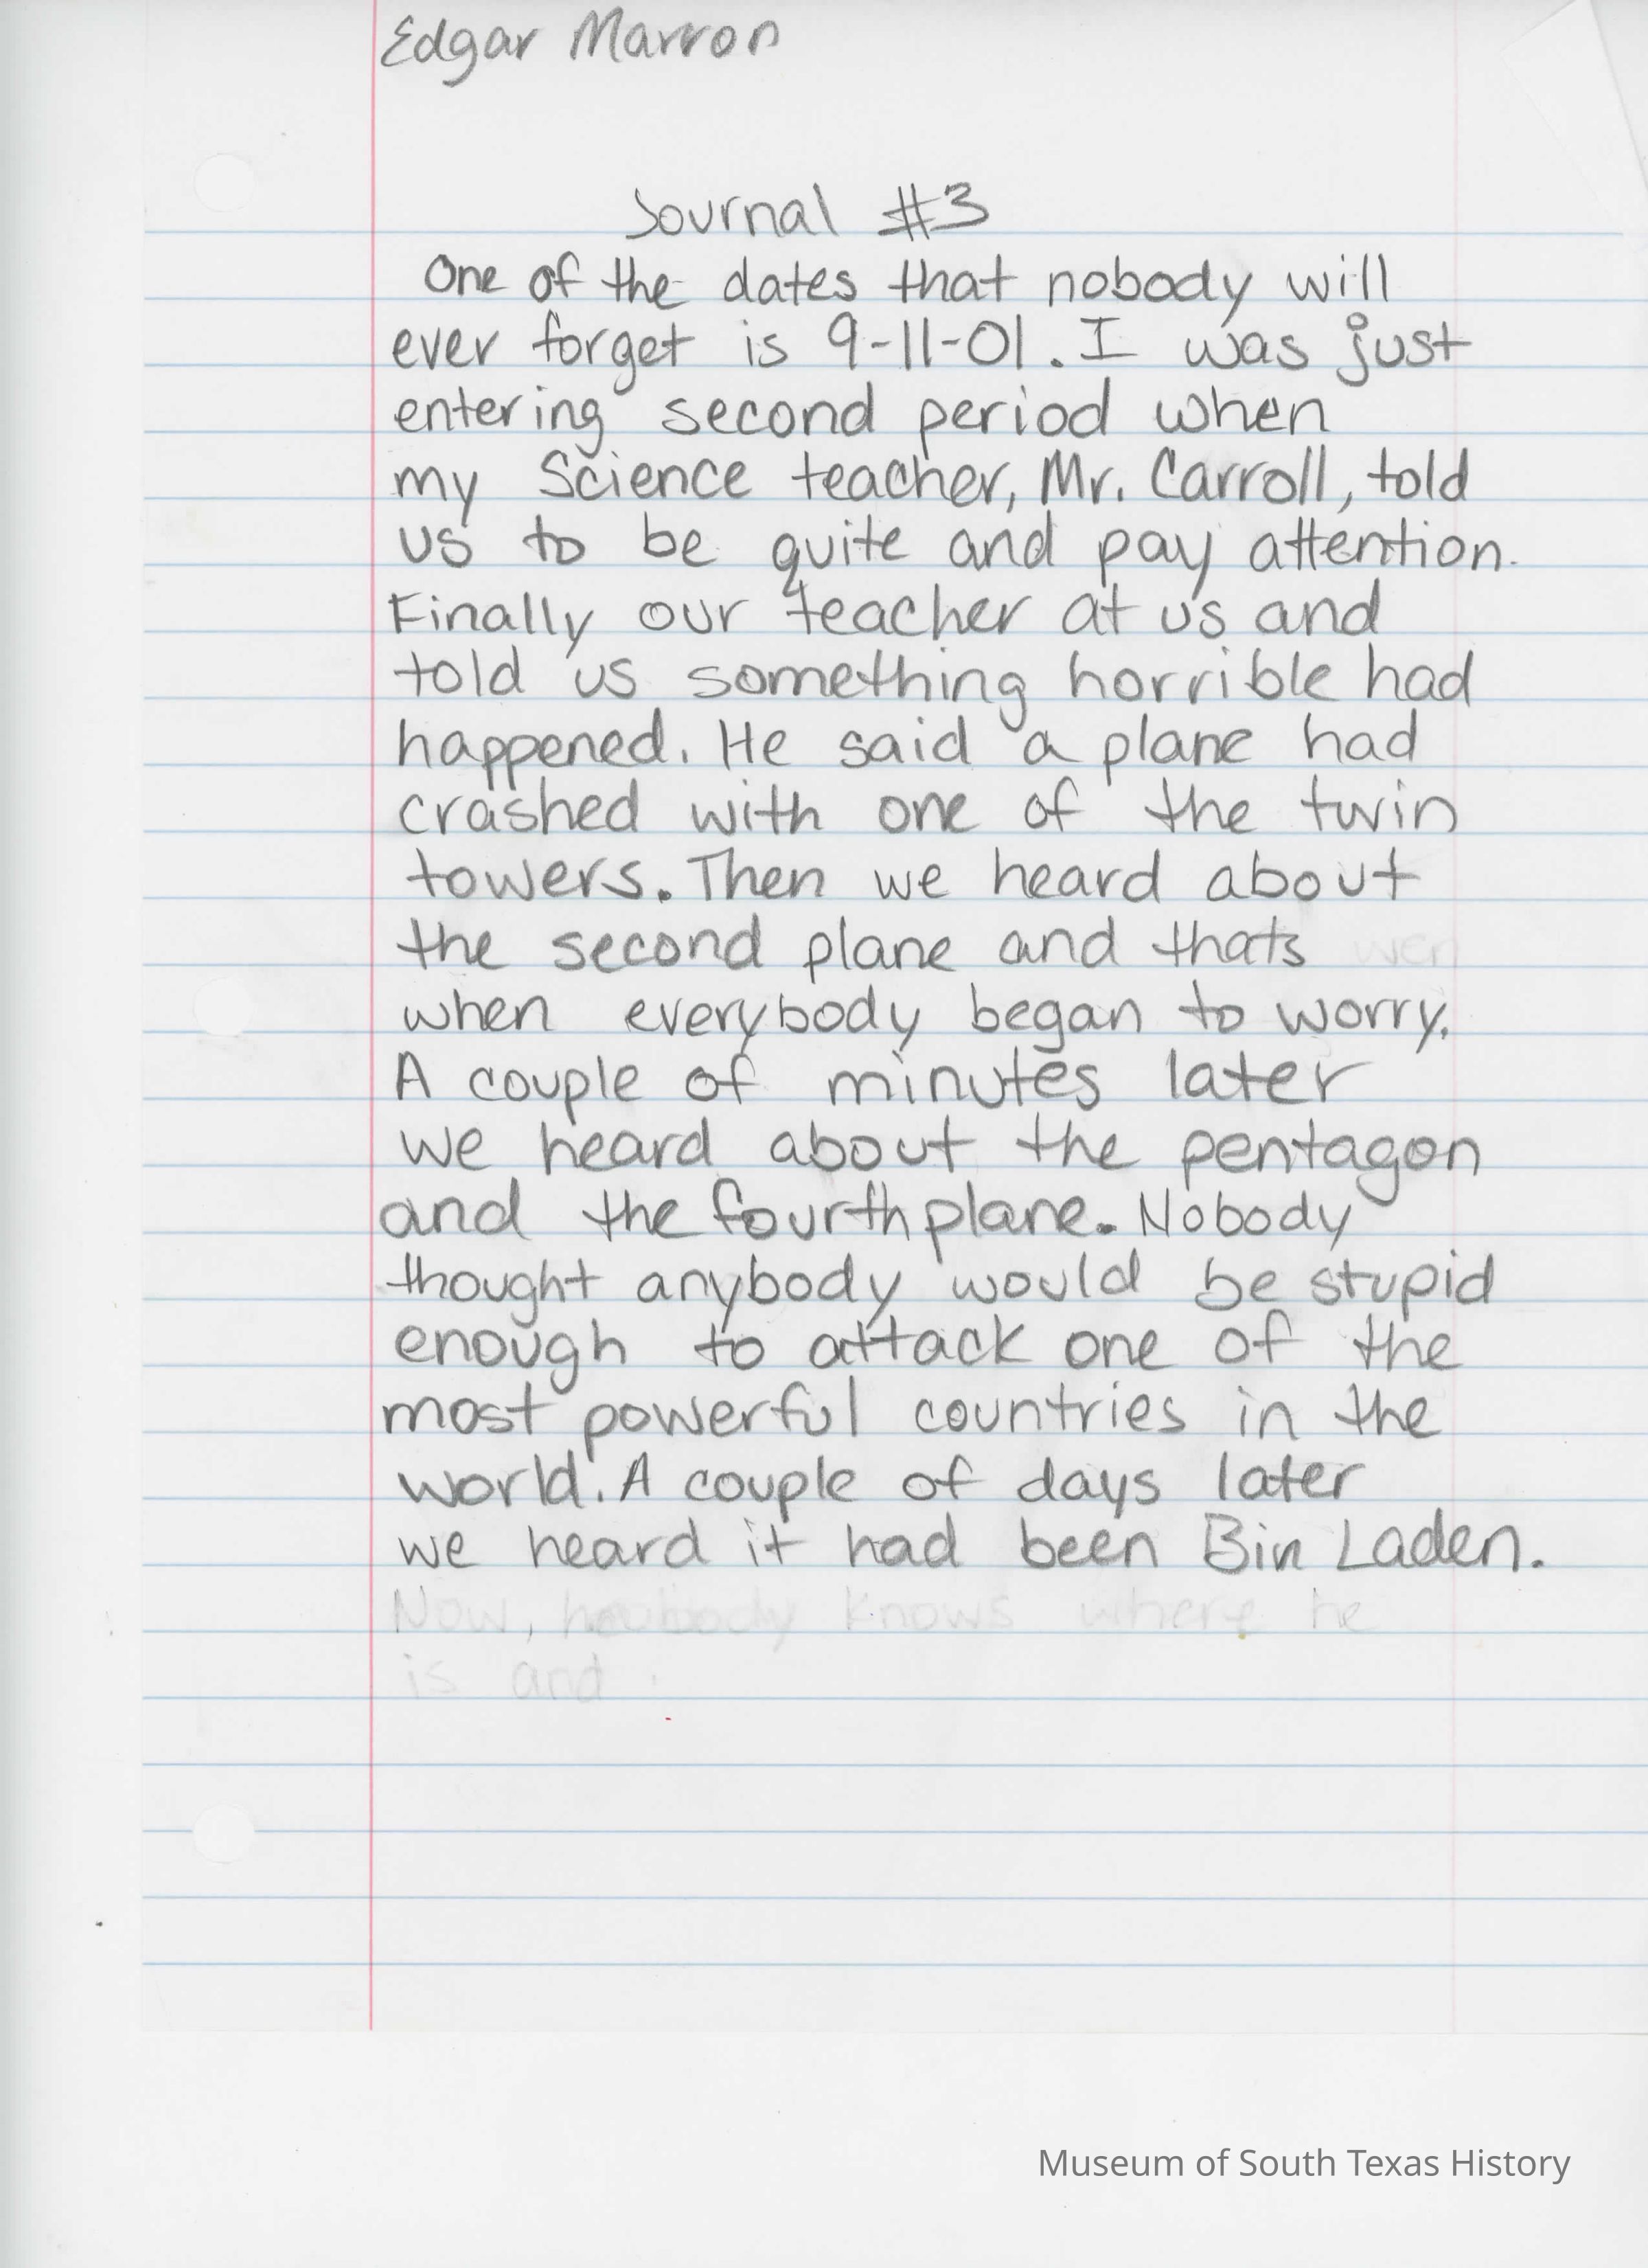 Edgar Marron
Journal #3
One of the dates that nobody will
ever forget is 9-11-01. I was just
entering second period when
my Science teacher, Mr. Carroll, told
us to be quite and pay attention.
Finally our teacher at us and
told us something horrible had
happened. He said a plane had
crashed with one of the twin
towers. Then we heard about
the second plane and thats wen
when everybody began to worry.
A couple of minutes later
we heard about the pentagon
and the fourth plane. Nobody
thought anybody would be stupid
enough to attack one of the
most powerful countries in the
world. A couple of days later
we heard it had been Bin Laden.
Now, knows where he
is and
Museum of South Texas History